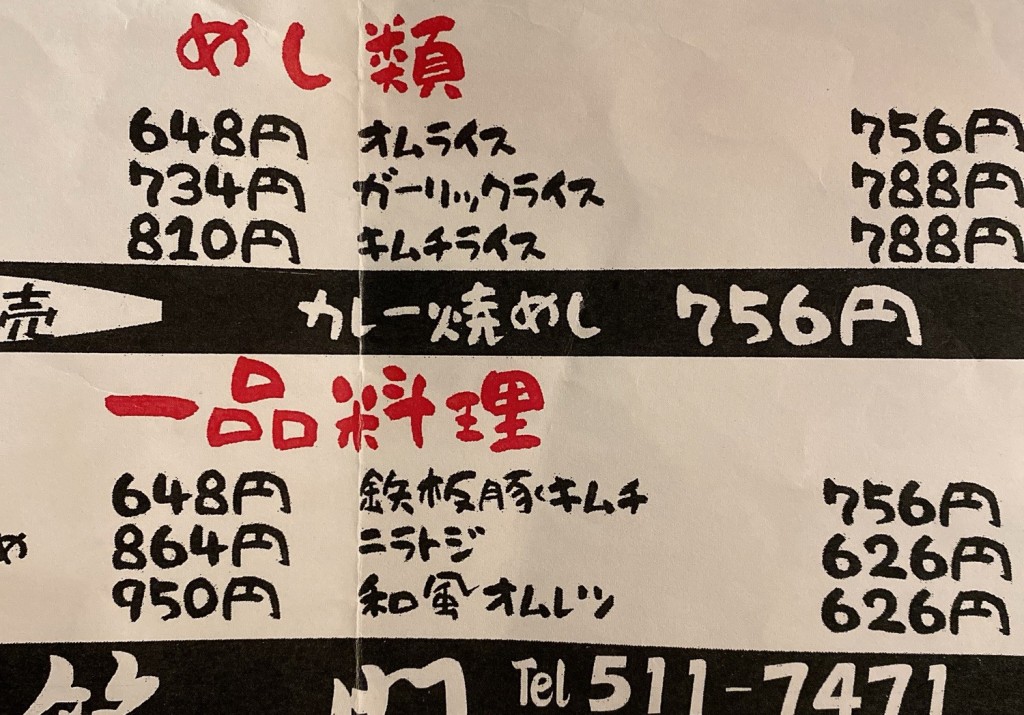 めし類
648円 オムライス 756円
734円 ガーリックライス 788円
810円 キムチライス 788円
売 カレー焼めし 756円
一品料理
648円 鉄板豚キムチ 756円
め 864円 ニラトジ 626円
950円 和風オムレツ 626円
Tel 511-7471